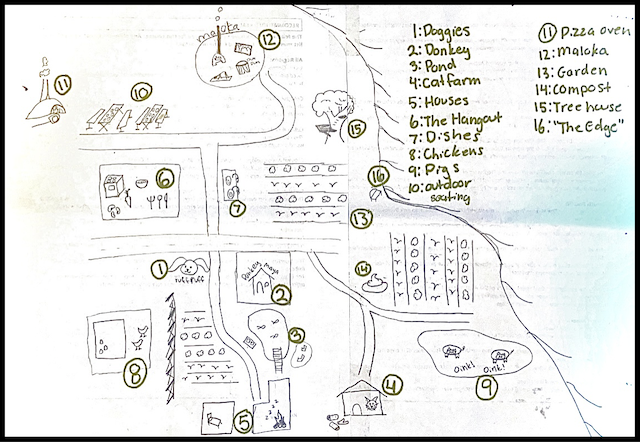 1: Doggies
2: Donkey
3: Pond
4: Catfarm
5: Houses
6: The Hangout
7: Dishes
8: Chickens
9: Pigs
10: outdoor
seating
11 Pizza oven
12: Maloka
13: Garden
14: Compost
15: Tree house
16: "The Edge"
maloka
12
11
10
15
6
7
16
13
1
ruffruff
2
14
3
8
5
4
9
oink!
oink!
z z z